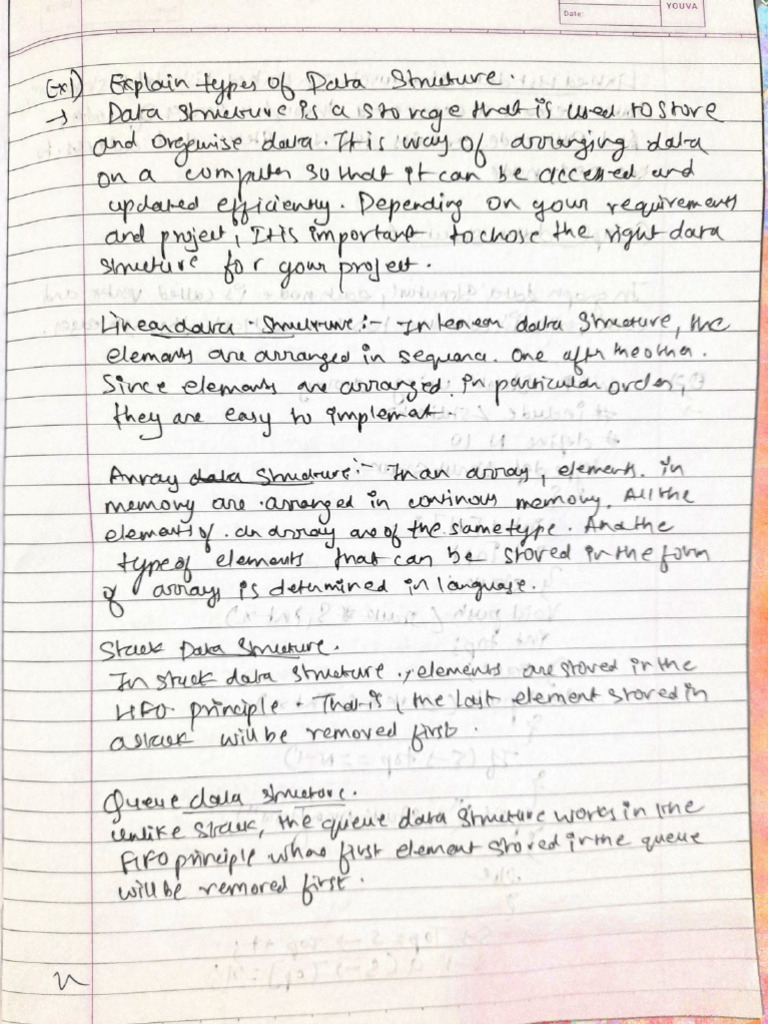 YOUVA
Date:
Ex1) Explain types of Data Structure.
→ Data structure is a storage that is used to store
and organise data. It is way of arranging data
on a computer so that it can be accessed and
updated efficiently. Depending on your requirements
and project, It is important to chose the right data
structure for your project.
Linear data structure :- In linear data structure, the
elements are arranged in sequance. one after the other.
Since elements are arranged in particular order,
they are easy to implemat.
Array data structure :- In an array, elements in
memory are arranged in continous memory. All the
elements of an array are of the same type. And the
type of elements that can be stored in the form
of arrays is determined in language.
Stack Data Structure.
In stack data structure, elements are stored in the
LIFO principle. That is, the last element stored in
a stack will be removed first.
Queue data structure.
unlike stack, the queue data structure works in the
FIFO principle where first element stored in the queue
will be removed first.